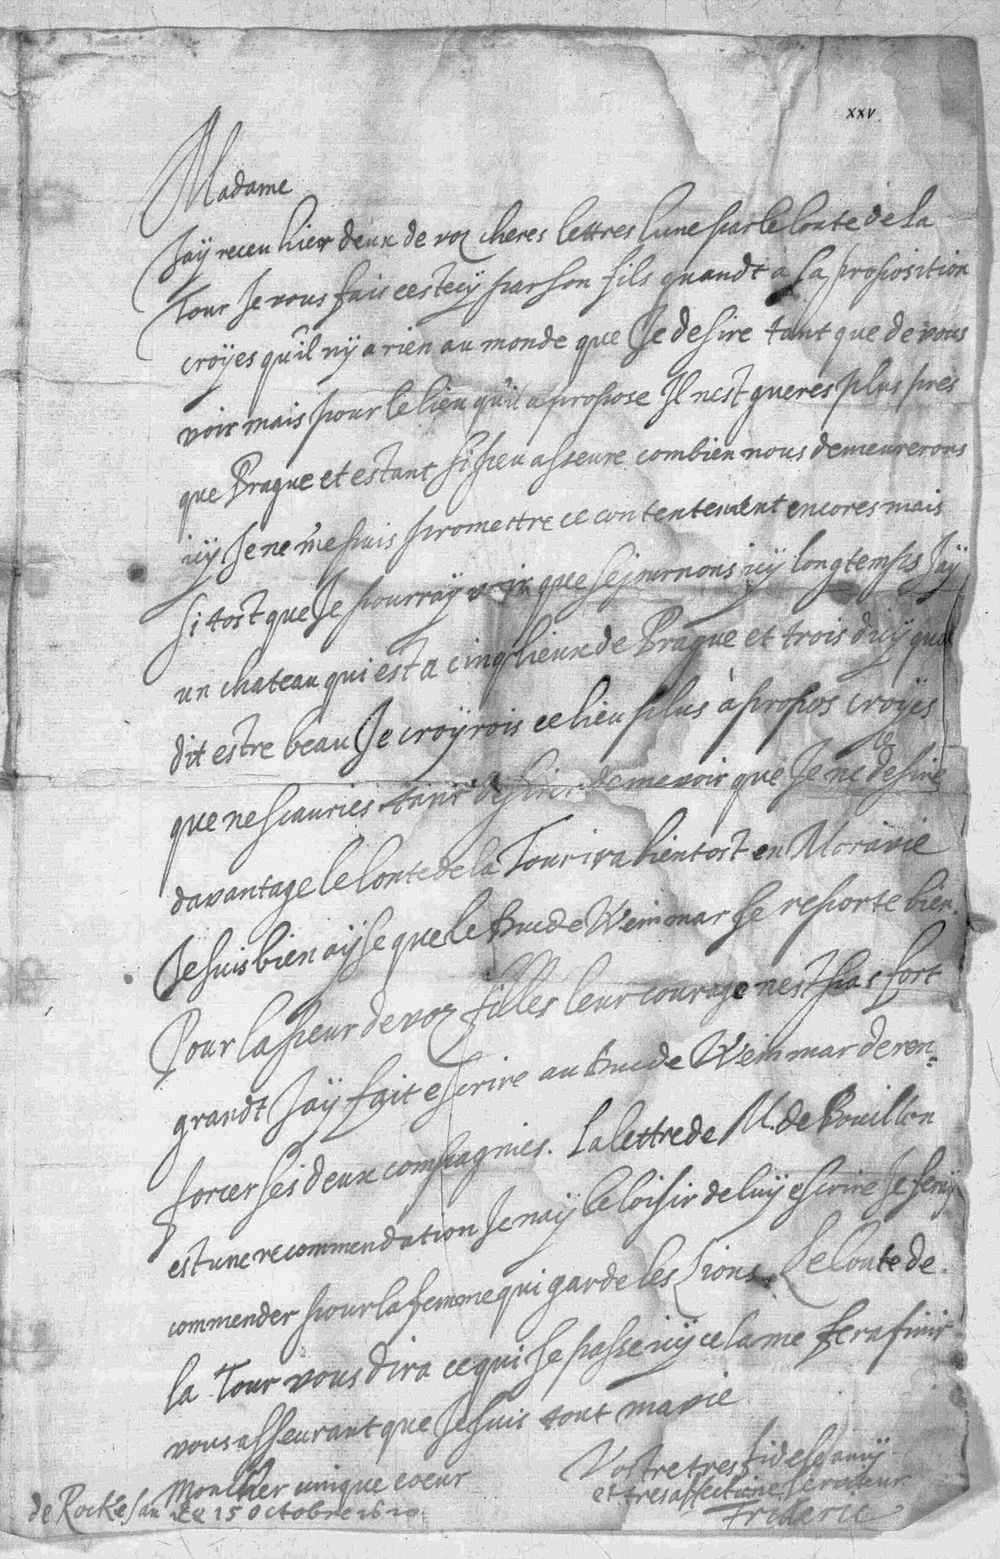 xxv
Madame
Jay receu hier deux de voz cheres lettres lune par le Conte de la
Tour Je vous fais cestecy par son fils quandt a sa proposition
croÿes qu'il nÿ a rien au monde que Je desire tant que de vous
voir mais pour le lieu qu'il a propose Il nest gueres plus pres
que Prague et estant si peu asseure combien nous demeurerons
icÿ Je ne me puis promettre ce contentement encores mais
si tost que Je pourraÿ voir que sejournons icÿ longtemps Jaÿ
un chateau qui est a cinq lieux de Prague et trois dicÿ quon
dit estre beau Je croÿrois ce lieu plus à propos croÿes
que ne scauries tant desirer de me voir que Je ne le desire
davantage le Conte de la Tour ira bientost en Moravie
Je suis bien aÿse que le Duc de Weinmar se reporte bien.
Pour la peur de voz filles leur courage nest pas fort
grandt Jaÿ fait escrire au Duc de Weinmar de ren=
forcer ses deux compagnies. La lettre de M. de Bouillon
est une recommendation Je naÿ le loisir de luÿ escrire Je feraÿ
commender pour la femme qui garde les Lions. Le Conte de
la Tour vous dira ce qui se passe icÿ cela me fera finir
vous asseurant que Je suis tout ma vie
Mon Cher unique coeur
Vostre tres fidele amÿ
et tres affectione serviteur
Frideric
de Rockesan ce 15 octobre 1620.